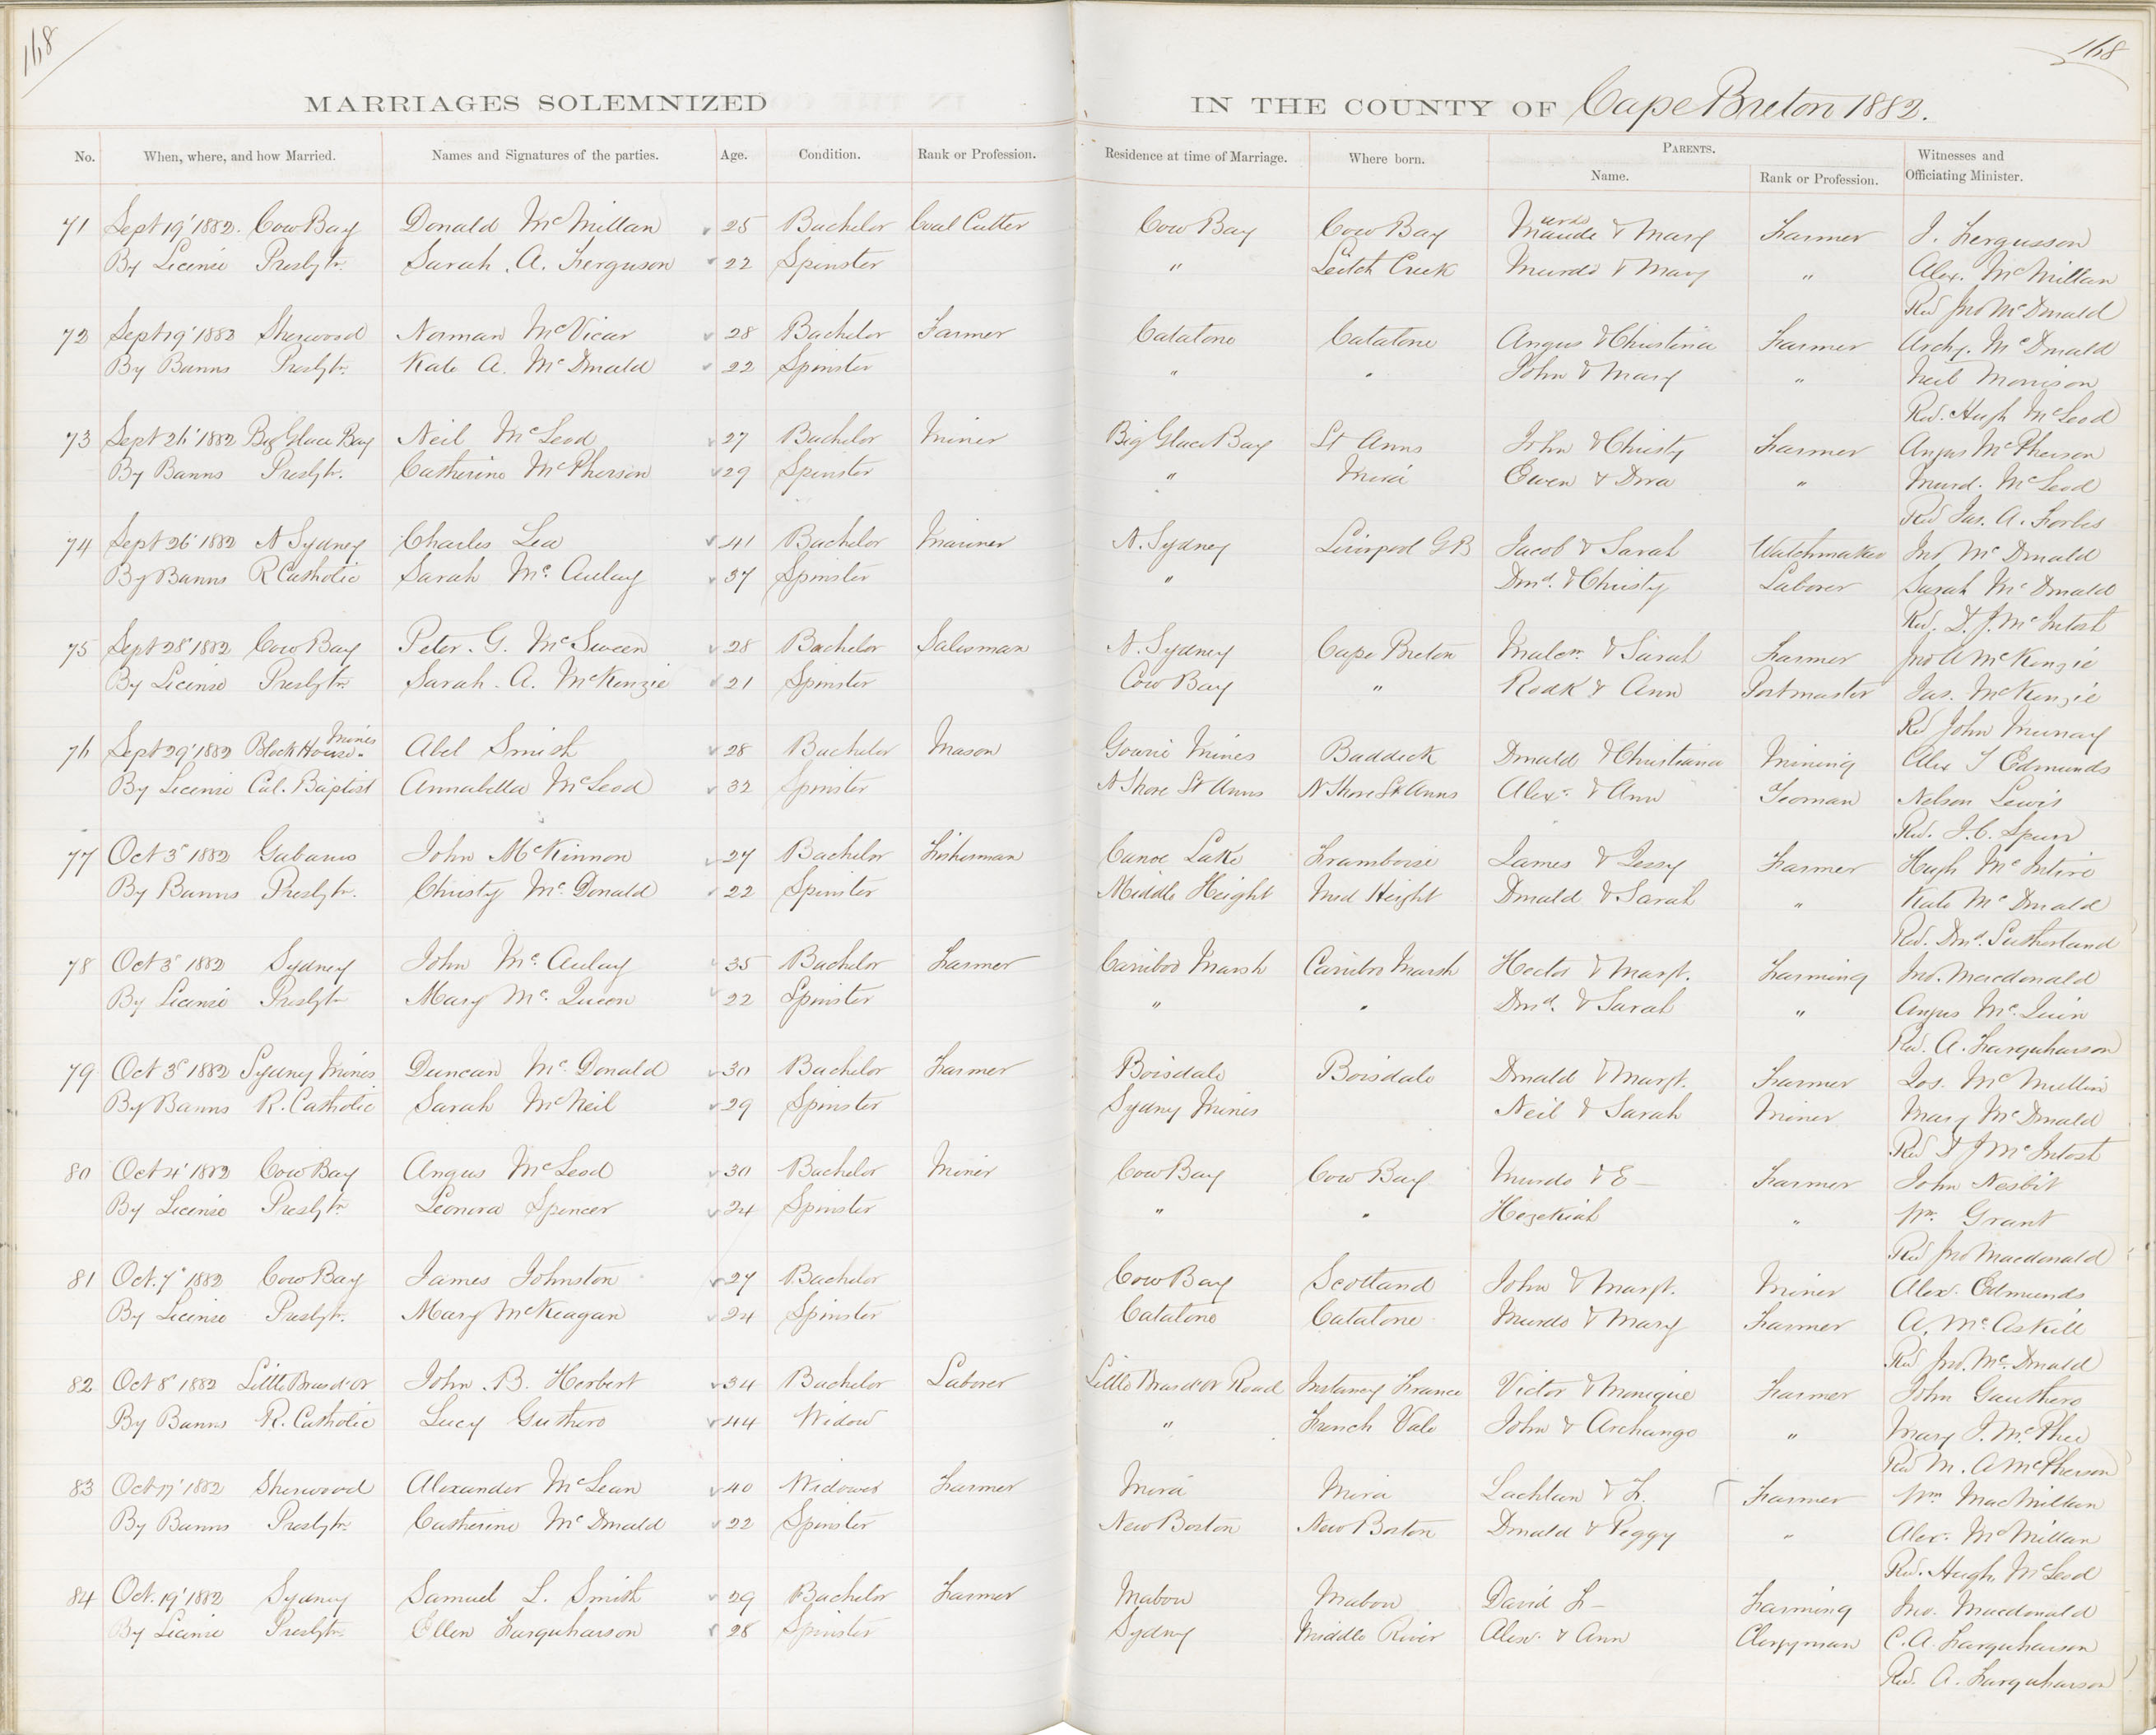 168
168
MARRIAGES SOLEMNIZED IN THE COUNTY OF Cape Breton 1882.
No. When, where, and how Married. Names and Signatures of the parties. Age. Condition. Rank or Profession. Residence at time of Marriage. Where born. PARENTS. Name. Rank or Profession. Witnesses and Officiating Minister.
71 Sept 19' 1882. Cow Bay Donald McMillan 25 Bachelor Coal Cutter Cow Bay Cow Bay & Mary Farmer J. Fergusson
By License Presbytn. Sarah. A. Ferguson 22 Spinster " Leitch Creek Murdo & Mary " Alex. McMillan
Revd Jno McDonald
72 Sept 19' 1882 Sherwood Norman McVicar 28 Bachelor Farmer Catalone Catalone Angus & Christina Farmer Archy. McDonald
By Banns Presbytn. Kate A. McDonald 22 Spinster " " John & Mary " Neil Morrison
Revd. Hugh McLeod
73 Sept 26' 1882 Big Glace Bay Neil McLeod 27 Bachelor Miner Big Glace Bay St Anns John & Christy Farmer Angus McPherson
By Banns Presbytn. Catherine McPherson 29 Spinster " Mira Ewen & Dora " Murd. McLeod
Revd Jas. A. Forbes
74 Sept 26' 1882 N Sydney Charles Lea 41 Bachelor Mariner N. Sydney Liverpool GB Jacob & Sarah Watchmaker Jno McDonald
By Banns R Catholic Sarah McAulay 37 Spinster " Dond. & Christy Laborer Sarah McDonald
Revd. D. J. McIntosh
75 Sept 28' 1882 Cow Bay Peter. G. McSween 28 Bachelor Salesman N. Sydney Cape Breton Malcm. & Sarah Farmer Jno A McKenzie
By License Presbytn. Sarah. A. McKenzie 21 Spinster Cow Bay " Rodk & Ann Postmaster Jas. McKenzie
Revd John Murray
76 Sept 29' 1882 Block House Mines Abel Smith 28 Bachelor Mason Gowrie Mines Baddeck Donald & Christiana Mining Alex T Edmunds
By License Cal. Baptist Annabella McLeod 32 Spinster N Shore St Anns N Shore St Anns Alexr. & Ann Yeoman Nelson Lewis
Revd. J. C. Spurr
77 Oct 3' 1882 Gabarus John McKinnon 27 Bachelor Fisherman Canoe Lake Framboise James & Jessy Farmer Hugh McIntire
By Banns Presbytn. Christy McDonald 22 Spinster Middle Height Mid Height Donald & Sarah " Kate McDonald
Revd. Dond. Sutherland
78 Oct 3' 1882 Sydney John McAulay 35 Bachelor Farmer Caribou Marsh Caribo Marsh Hector & Margt. Farming Jno. Macdonald
By License Presbytn Mary McQueen 22 Spinster " " Dond. & Sarah " Angus McQuin
Revd. A. Farquharson
79 Oct 3' 1882 Sydny Mines Duncan McDonald 30 Bachelor Farmer Boisdale Boisdale Donald & Margt. Farmer Jos. McMullin
By Banns R. Catholic Sarah McNeil 29 Spinster Sydny Mines Neil & Sarah Miner Mary McDonald
Revd D J McIntosh
80 Oct 4' 1882 Cow Bay Angus McLeod 30 Bachelor Miner Cow Bay Cow Bay Murdo & E— Farmer John Nesbit
By License Presbytn Leonora Spencer 24 Spinster " " Hezekiah " Wm. Grant
Revd Jno Macdonald
81 Oct. 7' 1882 Cow Bay James Johnston 27 Bachelor Cow Bay Scotland John & Margt. Miner Alex. Edmunds
By License Presbytn. Mary McKeagan 24 Spinster Catalone Catalone Murdo & Mary Farmer A. McAskill
Revd Jno. McDonald
82 Oct 8' 1882 Little Brasd'or John. B. Herbert 34 Bachelor Laborer Little Brasd'or Road France Victor & Monique Farmer John Gauthero
By Banns R. Catholic Lucy Guthero 44 Widow " French Vale John & Archange " Mary J. McPhee
Revd M. A McPherson
83 Oct 17' 1882 Sherwood Alexander McLean 40 Widower Farmer Mira Mira Lachlan & F. Farmer Wm MacMillan
By Banns Presbytn. Catherine McDonald 22 Spinster New Boston New Boston Donald & Peggy " Alex. McMillan
Revd. Hugh McLeod
84 Oct. 19' 1882 Sydney Samuel L. Smith 29 Bachelor Farmer Mabou Mabou David L— Farming Jno. Macdonald
By License Presbytn. Ellen Farquharson 28 Spinster Sydny Middle River Alexr. & Ann Clergyman C. A. Farquharson
Revd. A. Farquharson